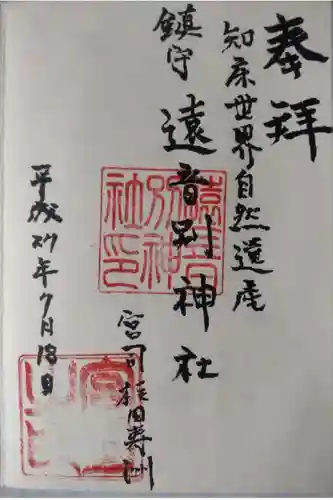 奉拝
知床世界自然遺産
鎮守
遠音別神社
遠音別神社印
宮司
平成27年7月18日